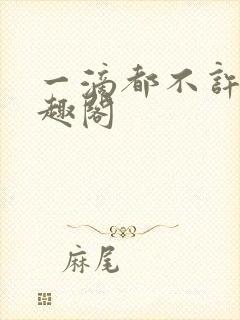 一滴都不許
趣閣
麻尾